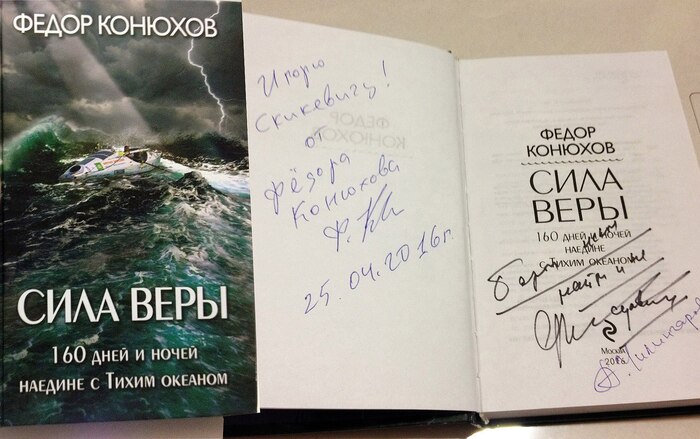 ФЕДОР КОНЮХОВ
СИЛА ВЕРЫ
160 ДНЕЙ И НОЧЕЙ
НАЕДИНЕ С ТИХИМ ОКЕАНОМ
Игорю
Скикевичу!
от
Фёдора
Конюхова
25.04.2016г.
ФЕДОР
КОНЮХОВ
СИЛА
ВЕРЫ
160 ДНЕЙ И НОЧЕЙ
НАЕДИНЕ
С ТИХИМ ОКЕАНОМ
Москва